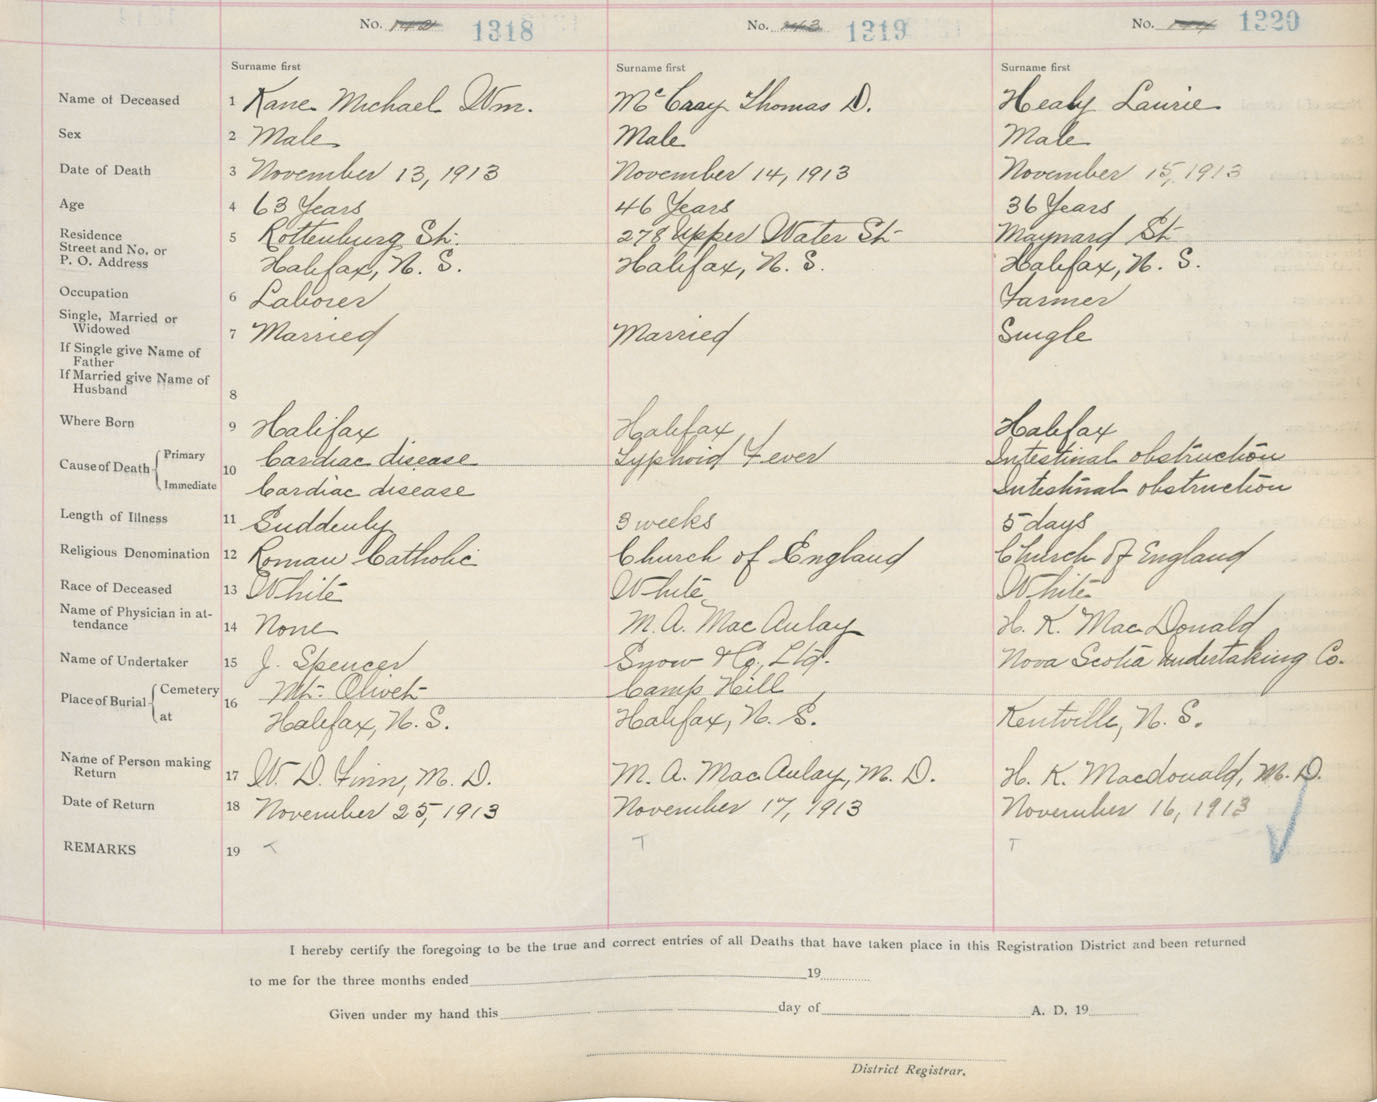 No. 142 1318
No. 143 1319
No. 144 1320
Surname first
Surname first
Surname first
Name of Deceased 1 Kane Michael Wm. McCray Thomas D. Healy Laurie
Sex 2 Male Male Male
Date of Death 3 November 13, 1913 November 14, 1913 November 15, 1913
Age 4 63 Years 46 Years 36 Years
Residence 5 Rottenburg St. 278 Upper Water St. Maynard St.
Street and No. or
P. O. Address Halifax, N. S. Halifax, N. S. Halifax, N. S.
Occupation 6 Laborer Farmer
Single, Married or
Widowed 7 Married Married Single
If Single give Name of
Father
If Married give Name of
Husband 8
Where Born 9 Halifax Halifax Halifax
Cause of Death Primary 10 Cardiac disease Typhoid Fever Intestinal obstruction
Immediate Cardiac disease Intestinal obstruction
Length of Illness 11 Suddenly 3 weeks 5 days
Religious Denomination 12 Roman Catholic Church of England Church of England
Race of Deceased 13 White White White
Name of Physician in at-
tendance 14 None M. A. MacAulay H. K. MacDonald
Name of Undertaker 15 J. Spencer Snow & Co., Ltd. Nova Scotia Undertaking Co.
Place of Burial Cemetery 16 Mt. Olivet Camp Hill
at Halifax, N. S. Halifax, N. S. Kentville, N. S.
Name of Person making
Return 17 W. D. Finn, M. D. M. A. MacAulay, M. D. H. K. Macdonald, M. D.
Date of Return 18 November 25, 1913 November 17, 1913 November 16, 1913
REMARKS 19 T T T
I hereby certify the foregoing to be the true and correct entries of all Deaths that have taken place in this Registration District and been returned
to me for the three months ended 19
Given under my hand this day of A. D. 19
District Registrar.